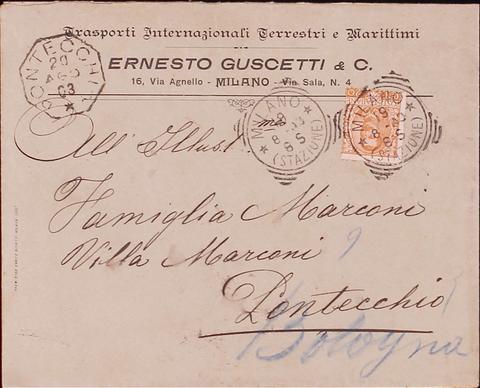 Trasporti Internazionali Terrestri e Marittimi
ERNESTO GUSCETTI & C.
16, Via Agnello - MILANO - Via Sala, N. 4
PONTECCHIO
20
AGO
03
MILANO
19
8-03
8 S
(STAZIONE)
MILANO
19
8-03
8 S
(STAZIONE)
All' Illus. ma
Famiglia Marconi
Villa Marconi
9
Pontecchio
Bologna